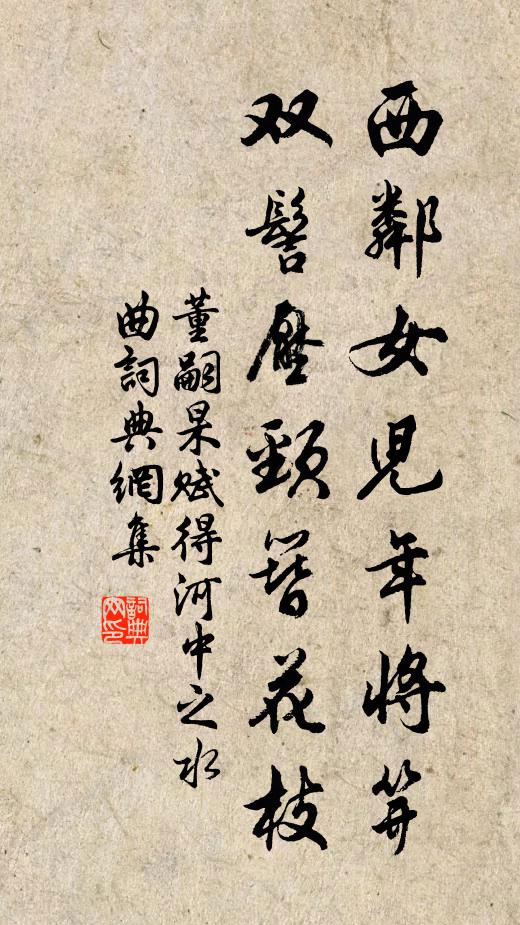 西鄰女児年将笄
双髻壓頸簪花枝
董嗣杲賦得河中之水
曲詞典網集
詞典网印